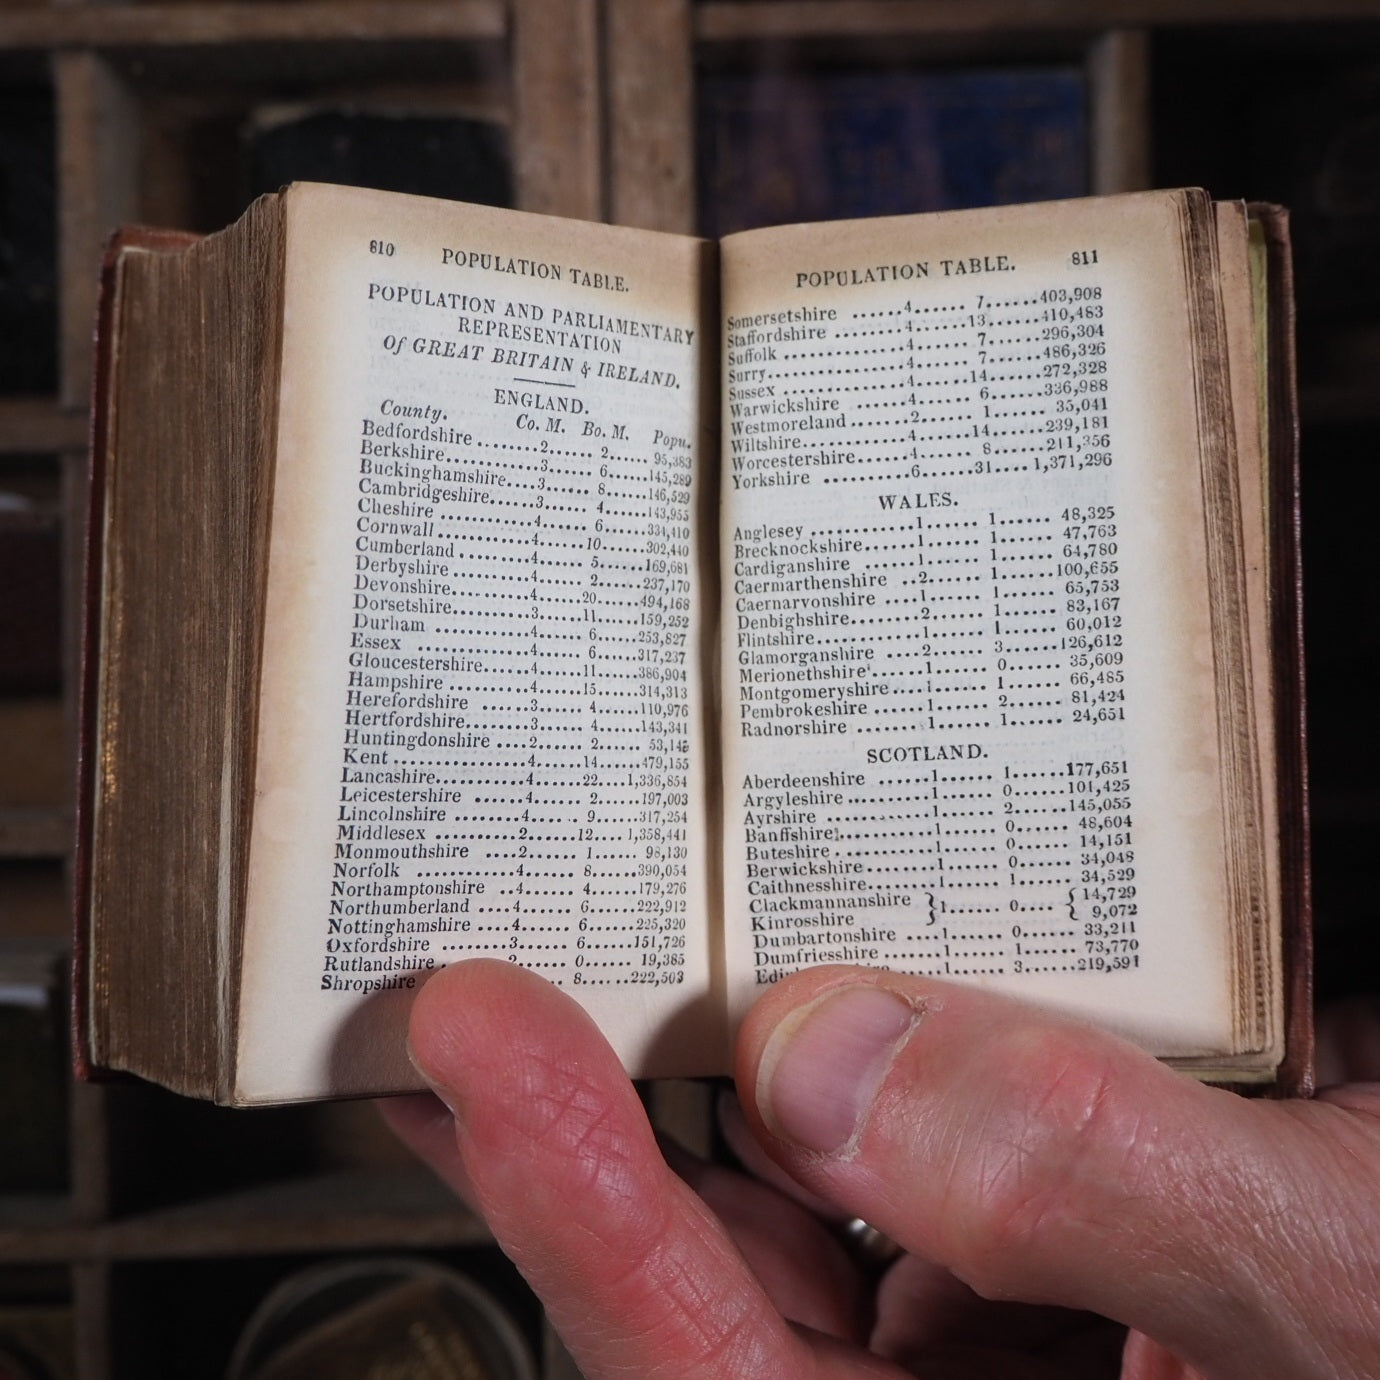 810 POPULATION TABLE.
POPULATION AND PARLIAMENTARY
REPRESENTATION
Of GREAT BRITAIN & IRELAND.
ENGLAND.
County. Co. M. Bo. M. Popu.
Bedfordshire ........2...... 2...... 95,383
Berkshire..............3...... 6......145,289
Buckinghamshire....3...... 8......146,529
Cambridgeshire......3...... 4......143,955
Cheshire ..............4...... 6......334,410
Cornwall ..............4......10......302,440
Cumberland ..........4...... 5......169,681
Derbyshire ............4...... 2......237,170
Devonshire............4......20......494,168
Dorsetshire............3......11......159,252
Durham ..............4...... 6......253,827
Essex ..................4...... 6......317,237
Gloucestershire......4......11......386,904
Hampshire ............4......15......314,313
Herefordshire ........3...... 4......110,976
Hertfordshire..........3...... 4......143,341
Huntingdonshire ....2...... 2...... 53,14
Kent ....................4......14......479,155
Lancashire............4......22...1,336,854
Leicestershire ......4...... 2......197,003
Lincolnshire ........4...... 9......317,254
Middlesex ............2......12....1,358,441
Monmouthshire ....2...... 1...... 98,130
Norfolk ..............4...... 8......390,054
Northamptonshire ..4...... 4......179,276
Northumberland ....4...... 6......222,912
Nottinghamshire ....4...... 6......225,320
Oxfordshire ........3...... 6......151,726
Rutlandshire ........2...... 0...... 19,385
Shropshire 8......222,503
POPULATION TABLE. 811
Somersetshire ......4...... 7......403,908
Staffordshire ........4......13......410,483
Suffolk ................4...... 7......296,304
Surry..................4...... 7......486,326
Sussex ................4......14......272,328
Warwickshire ......4...... 6......336,988
Westmoreland ......2...... 1...... 35,041
Wiltshire..............4......14......239,181
Worcestershire......4...... 8......211,356
Yorkshire ............6......31.... 1,371,296
WALES.
Anglesey ............1...... 1...... 48,325
Brecknockshire......1...... 1...... 47,763
Cardiganshire ......1...... 1...... 64,780
Caermarthenshire ..2...... 1......100,655
Caernarvonshire ....1...... 1...... 65,753
Denbighshire........2...... 1...... 83,167
Flintshire............1...... 1...... 60,012
Glamorganshire ....2...... 3......126,612
Merionethshire......1...... 0...... 35,609
Montgomeryshire....1...... 1...... 66,485
Pembrokeshire ......1...... 2...... 81,424
Radnorshire ........1...... 1...... 24,651
SCOTLAND.
Aberdeenshire ......1...... 1......177,651
Argyleshire ..........1...... 0......101,425
Ayrshire ............1...... 2......145,055
Banffshire............1...... 0...... 48,604
Buteshire ............1...... 0...... 14,151
Berwickshire........1...... 0...... 34,048
Caithnesshire........1...... 1...... 34,529
Clackmannanshire } 1...... 0.... { 14,729
Kinrosshire } { 9,072
Dumbartonshire ....1...... 0...... 33,211
Dumfriesshire ......1...... 1...... 73,770
......1...... 3......219,591